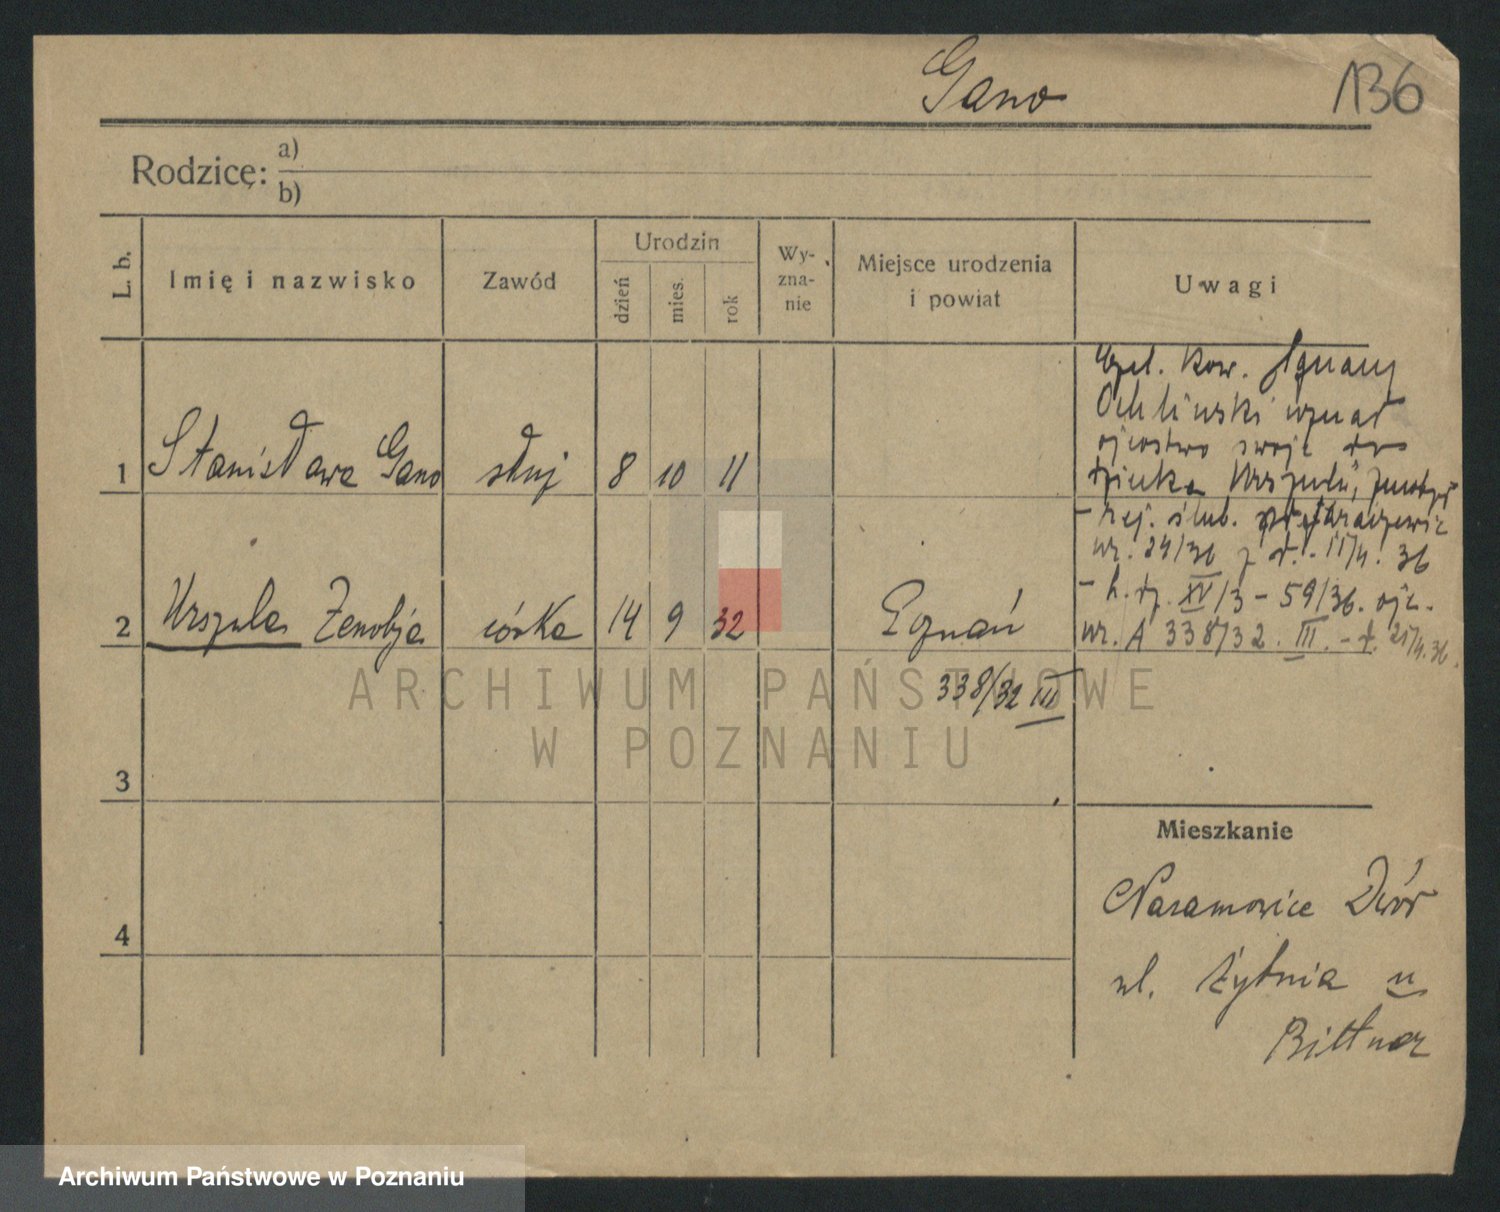 Gano
136
Rodzice:
a)
b)
L. b.
Imię i nazwisko
Zawód
Urodzin
dzień
mies.
rok
Wy-
zna-
nie
Miejsce urodzenia
i powiat
Uwagi
1 Stanisława Gano służ 8 10 11
Czel. kow. Ignacy
uznał
ojcostwo swoje do
dziecka Urszuli,
- rej. ślub.
nr. 24/36 z d. - 11/4. 36
XV/3 - 59/36.
nr. A 338/32. III. - d. 21/4. 36.
2 Urszula Zenobja córka 14 9 32 Poznań
338/32 III
3
Mieszkanie
4
Naramowice Dwór
ul. Żytnia u
Bittner
ARCHIWUM PAŃSTWOWE
W POZNANIU
Archiwum Państwowe w Poznaniu